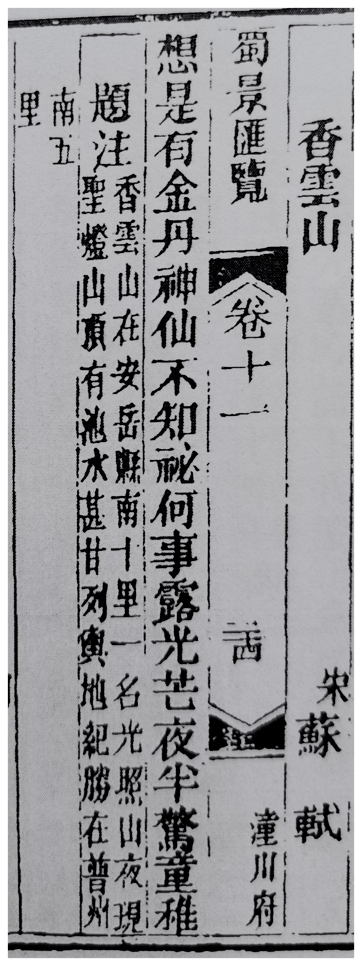 香雲山
宋蘇軾
蜀景匯覽
卷十一
潼川府
想是有金丹神仙不知祕何事露光芒夜半驚童稚
題注
香雲山在安岳縣南十里一名光照山夜現
聖燈山頂有池水甚甘列輿地紀勝在普州
南五
里